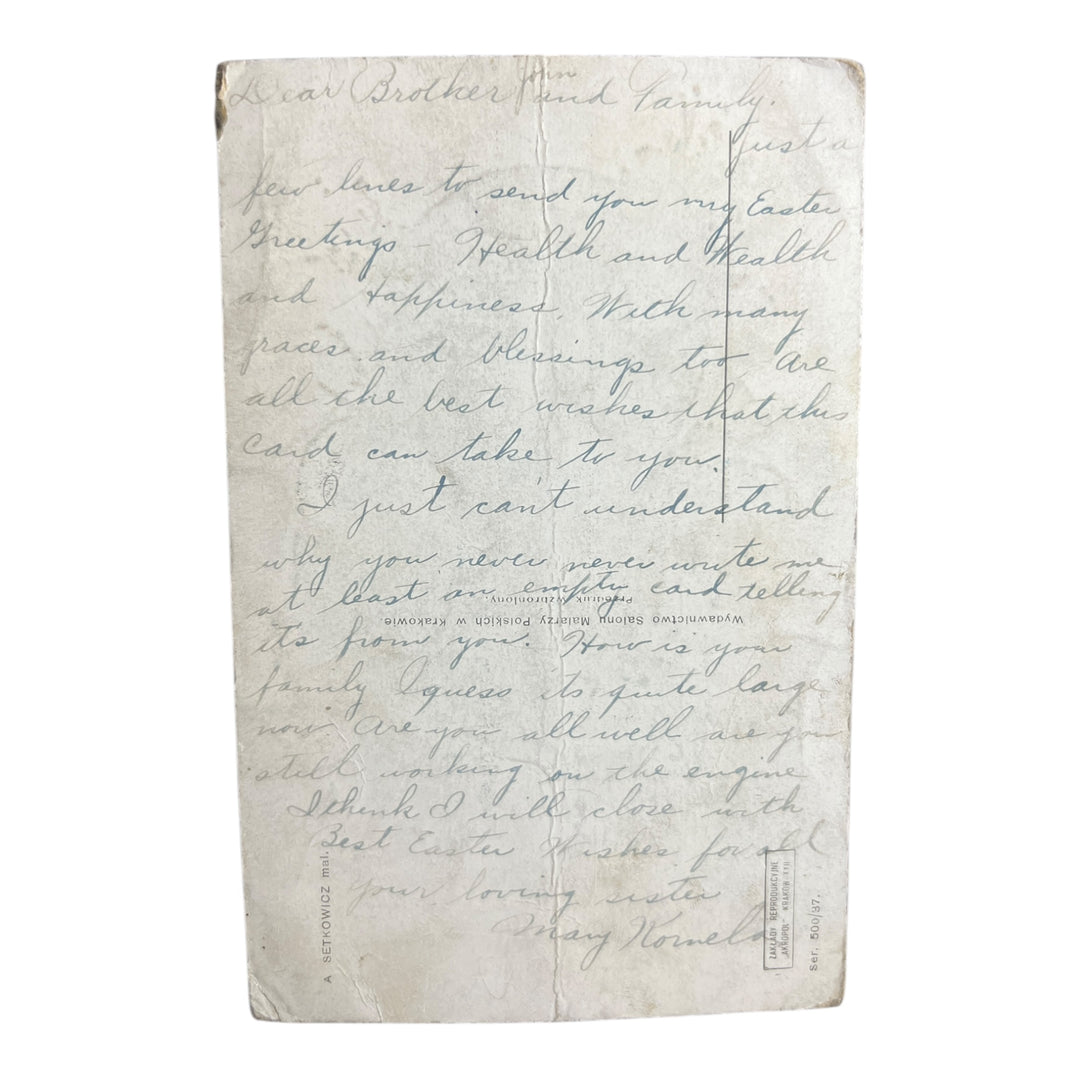 Dear Brother John and Family.
Just a
few lines to send you my Easter
Greetings - Health and Wealth
and Happiness. With many
graces and blessings too, are
all the best wishes that this
card can take to you.
I just can't understand
why you never never write me
at least an empty card telling
its from you. How is your
family I guess its quite large
now. Are you all well are you
still working on the engine
I think I will close with
Best Easter Wishes for all
your loving sister
Mary Kornela
Przedruk wzbroniony.
Wydawnictwo Salonu Malarzy Polskich w Krakowie.
A SETKOWICZ mal.
ZAKŁADY REPRODUKCYJNE
„AKROPOL" KRAKÓW XXII
Ser. 500/87.